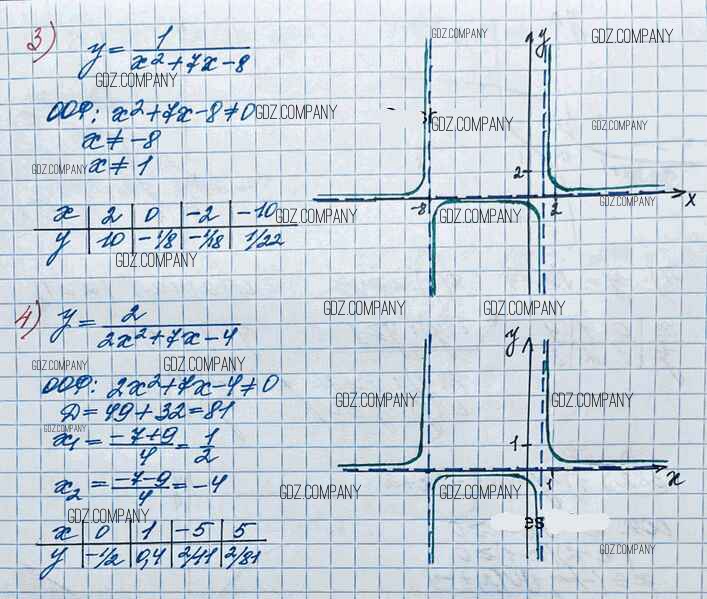 3) y = 1/(x²+7x-8)
ООФ: x²+7x-8≠0
x ≠ -8
x ≠ 1
x | 2 | 0 | -2 | -10
y | 10 | -1/8 | -1/18 | 1/22
y
2
-8
2
x
4) y = 2/(2x²+7x-4)
ООФ: 2x²+7x-4≠0
Д=49+32=81
x₁ = (-7+9)/4 = 1/2
x₂ = (-7-9)/4 = -4
x | 0 | 1 | -5 | 5
y | -1/2 | 0,4 | 2/11 | 2/81
y
1
1
x
es
GDZ.COMPANY
GDZ.COMPANY
GDZ.COMPANY
GDZ.COMPANY
GDZ.COMPANY
GDZ.COMPANY
GDZ.COMPANY
GDZ.COMPANY
GDZ.COMPANY
GDZ.COMPANY
GDZ.COMPANY
GDZ.COMPANY
GDZ.COMPANY
GDZ.COMPANY
GDZ.COMPANY
GDZ.COMPANY
GDZ.COMPANY
GDZ.COMPANY
GDZ.COMPANY
GDZ.COMPANY
GDZ.COMPANY
GDZ.COMPANY